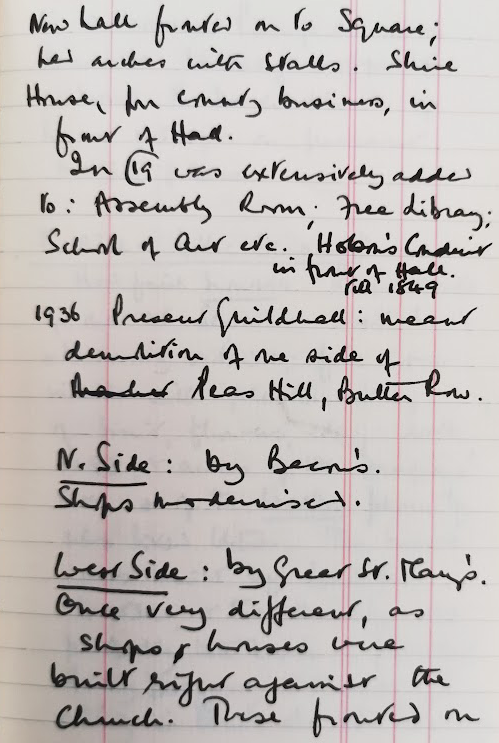 New hall fronted on to Square;
had arches with stalls. Shire
House, for county business, in
front of Hall.
In C19 was extensively added
to: Assembly Room; Free Library;
School of Art etc. Hobson's Conduit
in front of Hall.
till 1849
1936 Present Guildhall: meant
demolition of one side of
Peas Hill, Butter Row.
N. Side: by Bacon's.
Shops modernised.
West Side: by Great St. Mary's.
Once very different, as
shops & houses were
built right against the
Church. These fronted on